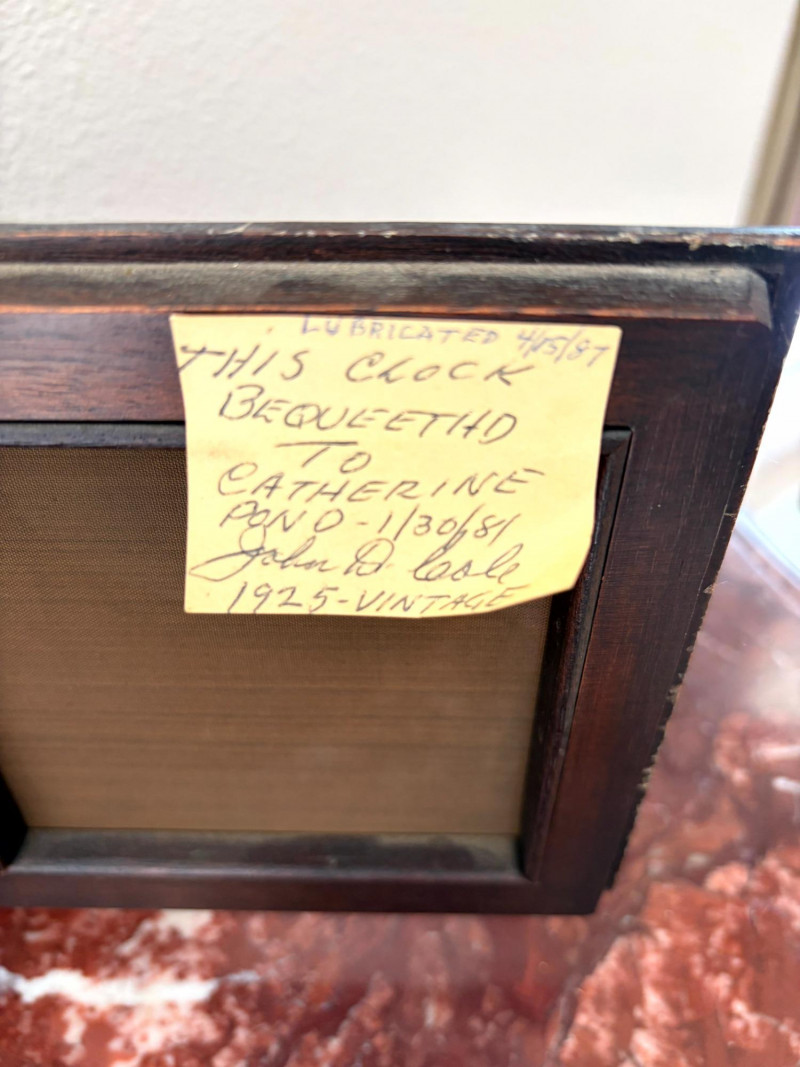 LUBRICATED 4/15/87
THIS CLOCK
BEQUEETHD
TO
CATHERINE
POND - 1/30/81
John D. Cole
1925-VINTAGE